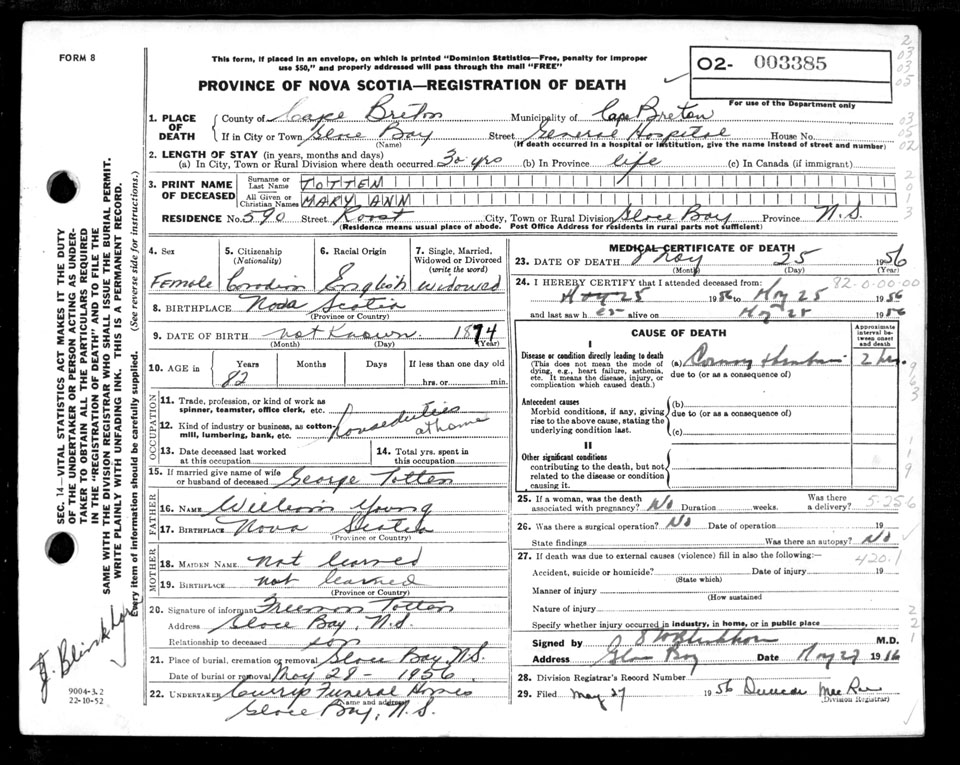 FORM 8
This form, if placed in an envelope, on which is printed "Dominion Statistics—Free, penalty for improper
use $50," and properly addressed will pass through the mail "FREE"
O2- 003385
PROVINCE OF NOVA SCOTIA—REGISTRATION OF DEATH
For use of the Department only
1. PLACE OF DEATH
County of Cape Breton Municipality of Cape Breton
If in City or Town Glace Bay Street General Hospital House No.
(Name) (If death occurred in a hospital or institution, give the name instead of street and number)
2. LENGTH OF STAY (in years, months and days)
(a) In City, Town or Rural Division where death occurred 30 yrs (b) In Province life (c) In Canada (if immigrant)
3. PRINT NAME OF DECEASED
Surname or Last Name TOTTEN
All Given or Christian Names MARY ANN
RESIDENCE No. 590 Street Roost City, Town or Rural Division Glace Bay Province N.S.
(Residence means usual place of abode. Post Office Address for residents in rural parts not sufficient)
4. Sex
Female
5. Citizenship (Nationality)
Canadian
6. Racial Origin
English
7. Single, Married, Widowed or Divorced (write the word)
Widowed
8. BIRTHPLACE Nova Scotia
(Province or Country)
9. DATE OF BIRTH not Known 1874
(Month) (Day) (Year)
10. AGE in Years Months Days If less than one day old
82 hrs. or min.
OCCUPATION
11. Trade, profession, or kind of work as spinner, teamster, office clerk, etc.
houseduties
12. Kind of industry or business, as cotton-mill, lumbering, bank, etc.
at home
13. Date deceased last worked at this occupation
14. Total yrs. spent in this occupation
15. If married give name of wife or husband of deceased George Totten
FATHER
16. NAME William Young
17. BIRTHPLACE Nova Scotia
(Province or Country)
MOTHER
18. MAIDEN NAME not learned
19. BIRTHPLACE not learned
(Province or Country)
20. Signature of informant Freeman Totten
Address Glace Bay, N.S.
Relationship to deceased son
21. Place of burial, cremation or removal Glace Bay N.S.
Date of burial or removal May 28 - 1956
22. UNDERTAKER Curry Funeral Homes
(Name and address)
Glace Bay, N.S.
MEDICAL CERTIFICATE OF DEATH
23. DATE OF DEATH May 25 1956
(Month) (Day) (Year)
24. I HEREBY CERTIFY that I attended deceased from: 82-0-00-00
May 25 1956 to May 25 1956
and last saw h er alive on May 25 1956
CAUSE OF DEATH
Approximate interval between onset and death
I
Disease or condition directly leading to death
(This does not mean the mode of dying, e.g., heart failure, asthenia, etc. It means the disease, injury, or complication which caused death.)
(a) Coronary thrombosis 2 hrs.
due to (or as a consequence of)
Antecedent causes
Morbid conditions, if any, giving rise to the above cause, stating the underlying condition last.
(b)
due to (or as a consequence of)
(c)
II
Other significant conditions
contributing to the death, but not related to the disease or condition causing it.
25. If a woman, was the death associated with pregnancy? No Duration weeks. Was there a delivery?
5-256
26. Was there a surgical operation? No Date of operation 19
State findings Was there an autopsy? No
27. If death was due to external causes (violence) fill in also the following:—
420.1
Accident, suicide or homicide? Date of injury 19
(State which)
Manner of injury
(How sustained
Nature of injury
Specify whether injury occurred in industry, in home, or in public place
Signed by M.D.
Address Glace Bay Date May 27 1956
28. Division Registrar's Record Number
29. Filed May 27 1956 Duncan MacRae
(Division Registrar)
SEC. 14—VITAL STATISTICS ACT MAKES IT THE DUTY
OF THE UNDERTAKER OR PERSON ACTING AS UNDER-
TAKER TO OBTAIN ALL THE PARTICULARS REQUIRED
IN THE "REGISTRATION OF DEATH" AND TO FILE THE
SAME WITH THE DIVISION REGISTRAR WHO SHALL ISSUE THE BURIAL PERMIT.
WRITE PLAINLY WITH UNFADING INK. THIS IS A PERMANENT RECORD.
Every item of information should be carefully supplied. (See reverse side for instructions.)
9004-3.2
22-10-52